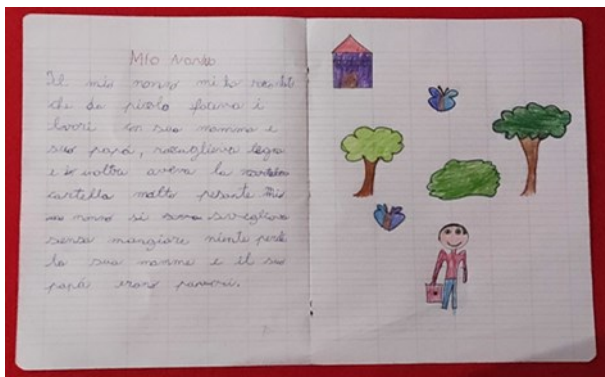 Mio nonno
Il mio nonno mi ha
che da piccolo faceva i
lavori con sua mamma e
suo papà, raccoglieva legna
e inoltre aveva la
cartella molto pesante mio
nonno si svegliava
senza mangiare niente perchè
la sua mamma e il suo
papà erano poveri.